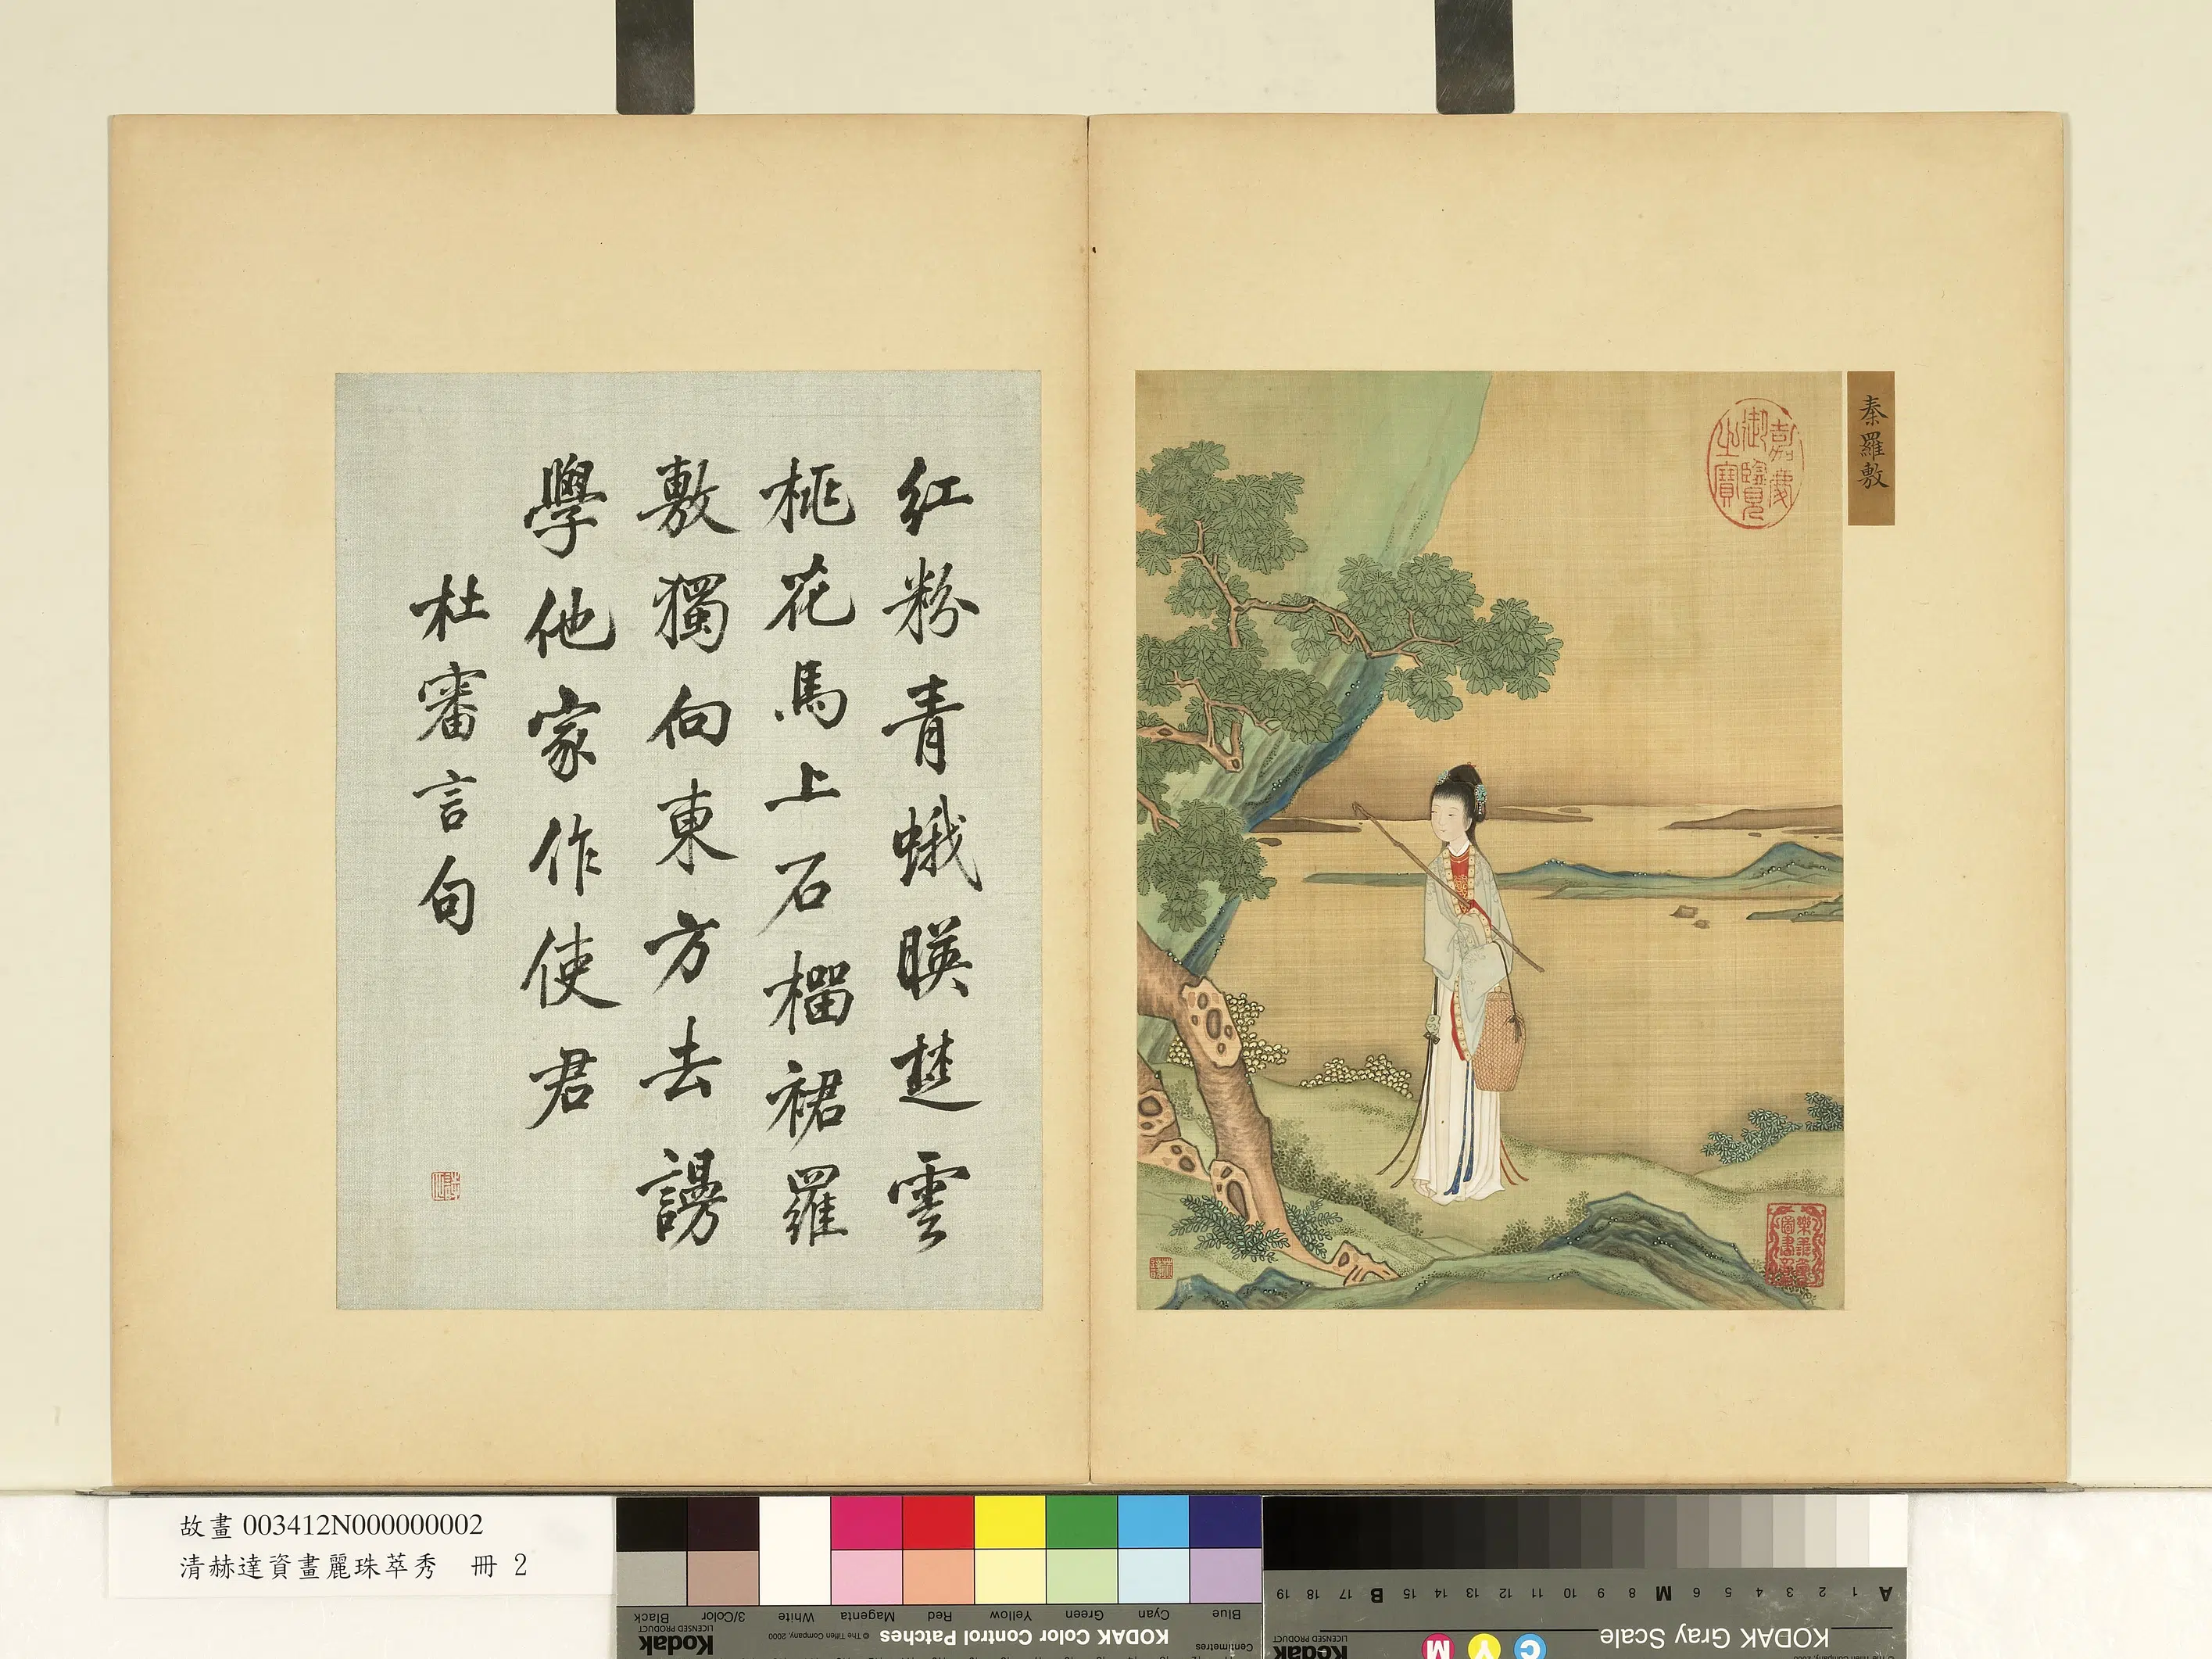 秦羅敷
嘉慶
御覽
之寶
紅粉青蛾暎楚雲
桃花馬上石榴裙羅
敷獨向東方去謾
學他家作使君
杜審言句
故畫 003412N000000002
清赫達資畫麗珠萃秀 冊 2
Blue
Cyan
Green
Yellow
Red
Magenta
White
3/Color
Black
Centimetres
KODAK Color Control Patches
© The Tiffen Company, 2000
Kodak
LICENSED PRODUCT
A 1 2 3 4 5 6 M 8 9 10 11 12 13 14 15 B 17 18 19
KODAK Gray Scale
C Y M
Kodak
LICENSED PRODUCT
© The Tiffen Company, 2000